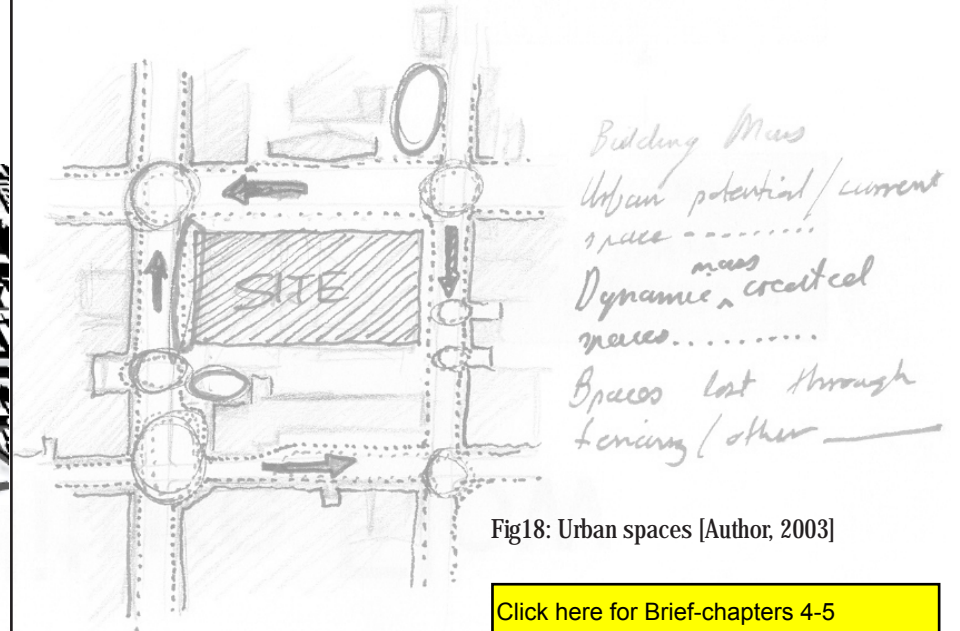 SITE
Building Mass
Urban potential / current
space ---------
mass
Dynamic ^ created
spaces..........
Spaces lost through
fencing / other ———
Fig18: Urban spaces [Author, 2003]
Click here for Brief-chapters 4-5